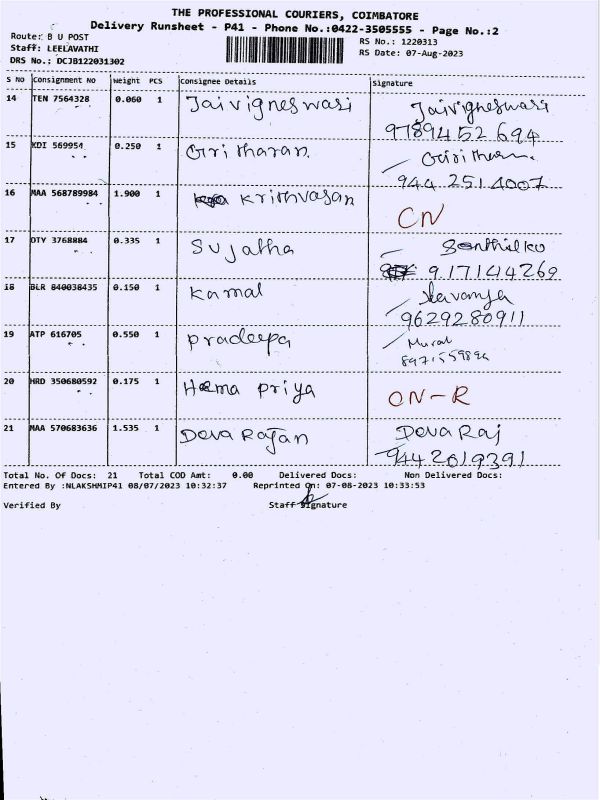 THE PROFESSIONAL COURIERS, COIMBATORE
Delivery Runsheet - P41 - Phone No.:0422-3505555 - Page No.:2
Route: B U POST
RS No.: 1220313
Staff: LEELAVATHI
RS Date: 07-Aug-2023
DRS No.: DCJB122031302
S No Consignment No Weight PCS Consignee Details Signature
14 TEN 7564328 0.060 1 Jaivigneswari Jaivigneswari
9789452694
15 KDI 569954 0.250 1 Giritharan
944 251 4007
16 MAA 568789984 1.900 1 Krithvasan
CN
17 OTY 3768884 0.335 1 Sujatha Senthilku
917144269
18 BLR 840038435 0.150 1 Kamal Lavanya
9629280911
19 ATP 616705 0.550 1 Pradeepa Murali
20 HRD 350680592 0.175 1 Hema Priya ON-R
21 MAA 570683636 1.535 1 Deva Rajan Deva Raj
9442619391
Total No. Of Docs: 21 Total COD Amt: 0.00 Delivered Docs: Non Delivered Docs:
Entered By :NLAKSHMIP41 08/07/2023 10:32:37 Reprinted On: 07-08-2023 10:33:53
Verified By Staff Signature